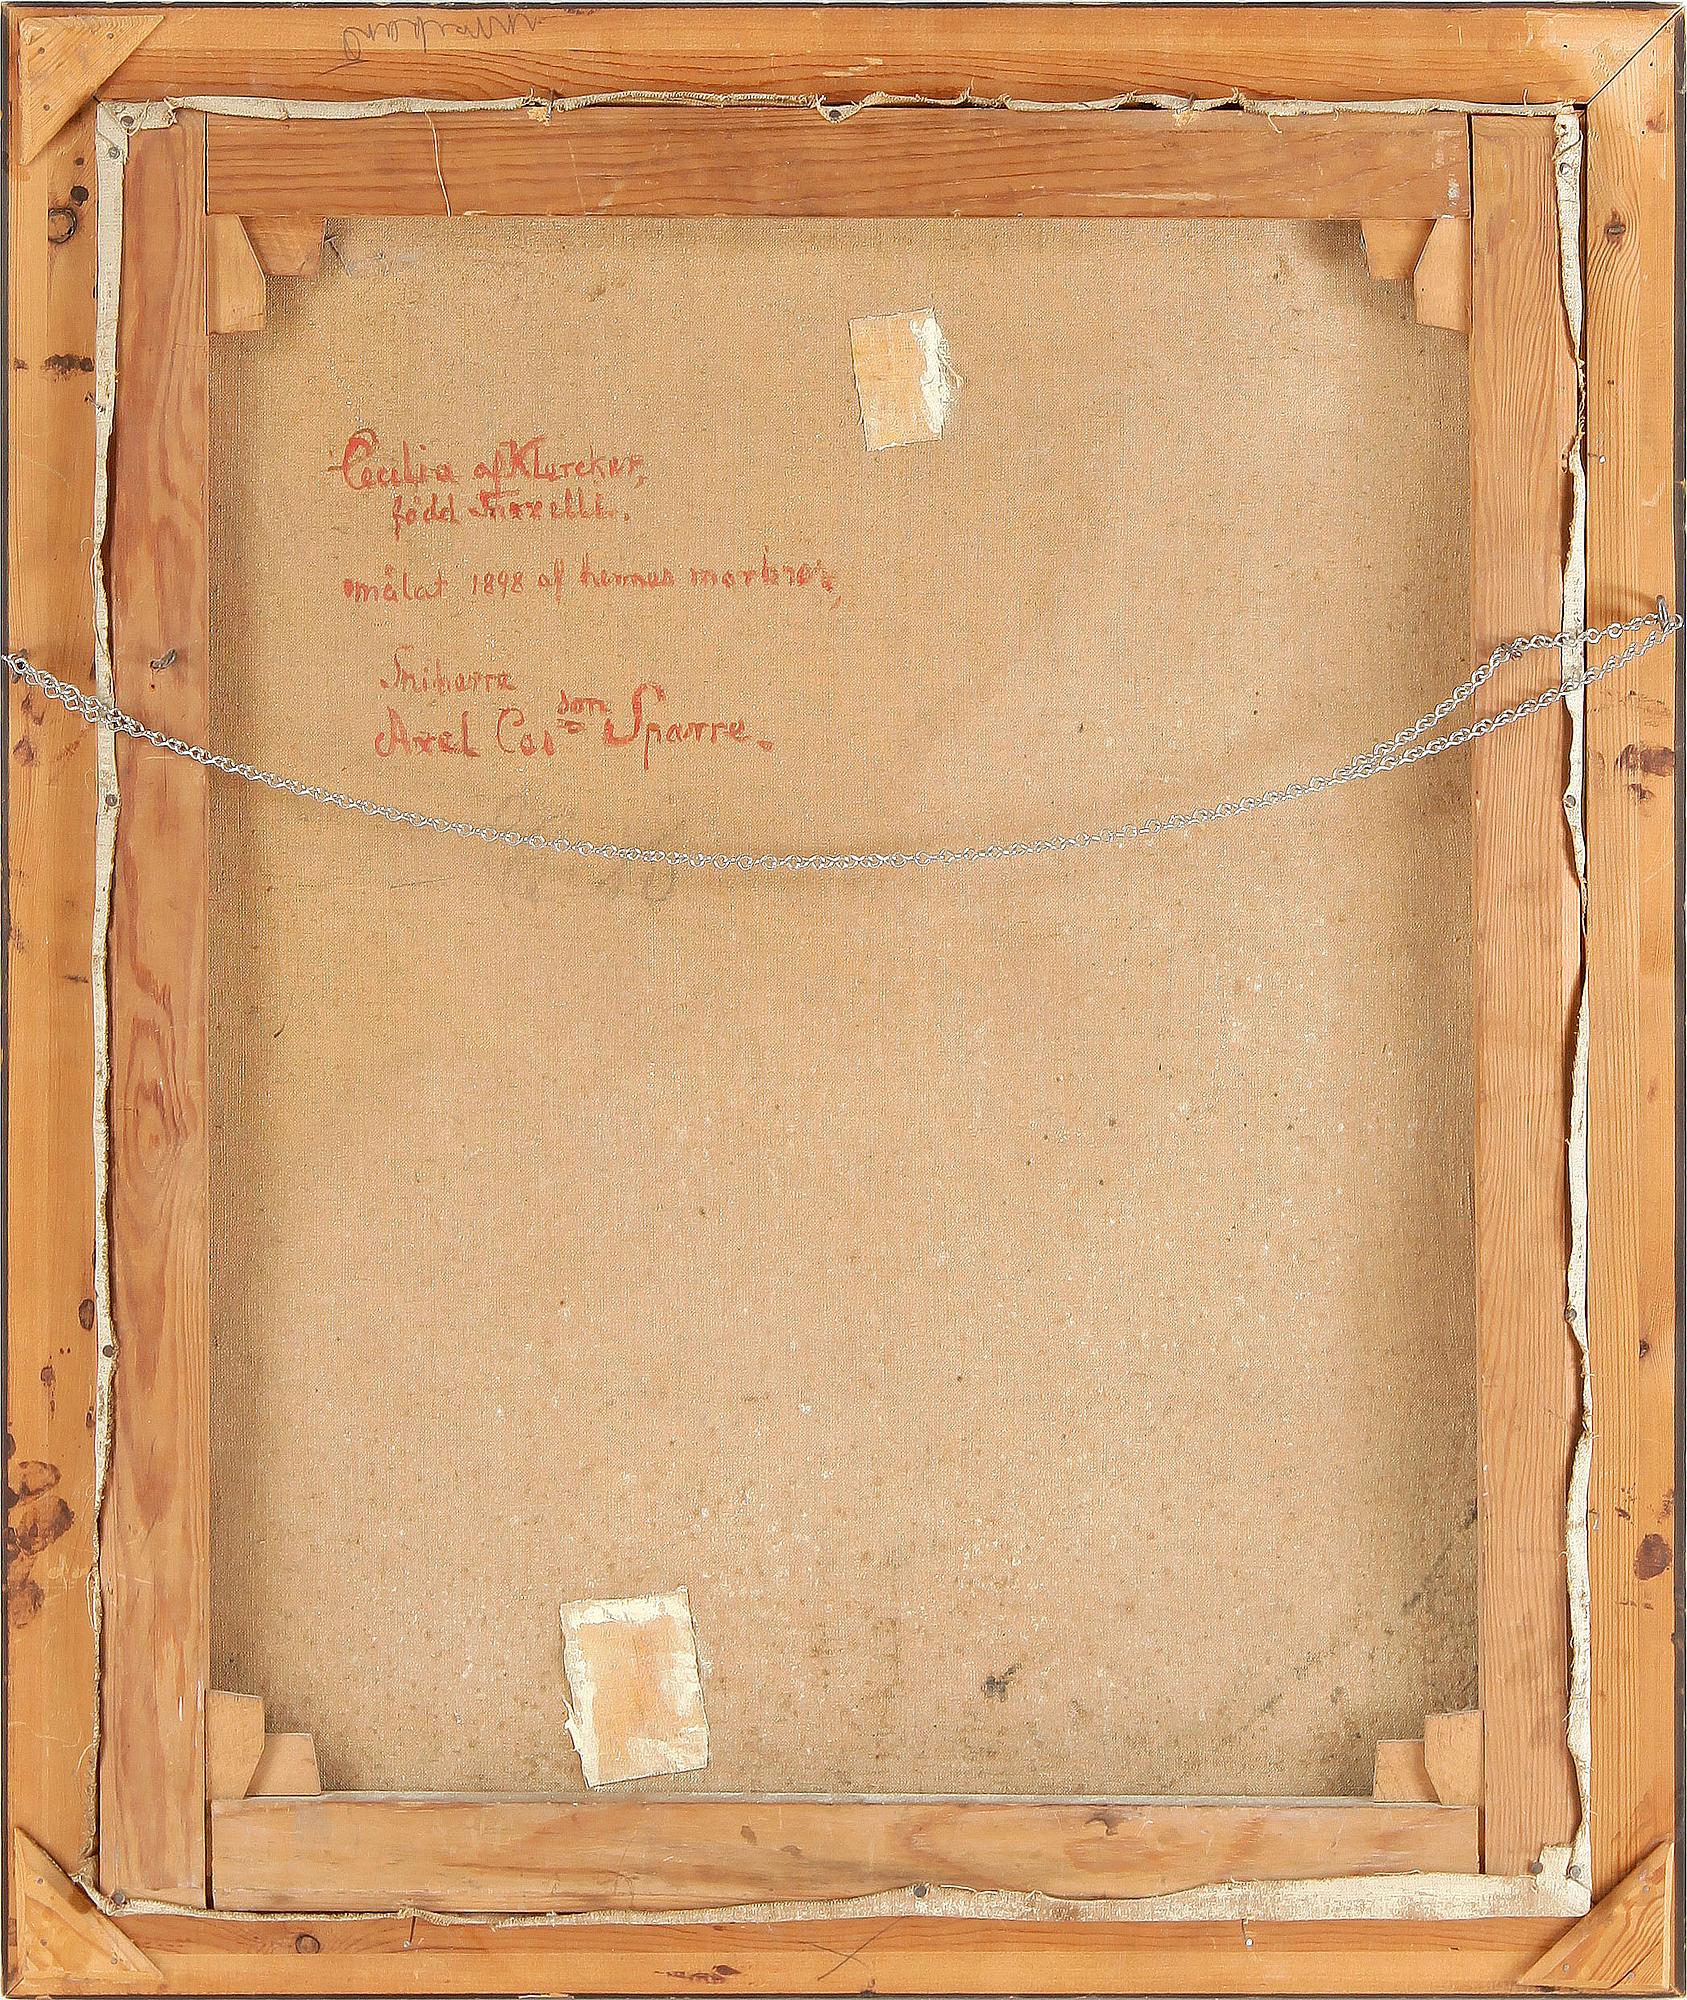 Cecilia af Klercker,
född
målat 1898 af hennes morbror,
Friherre
Axel Cas son Sparre.